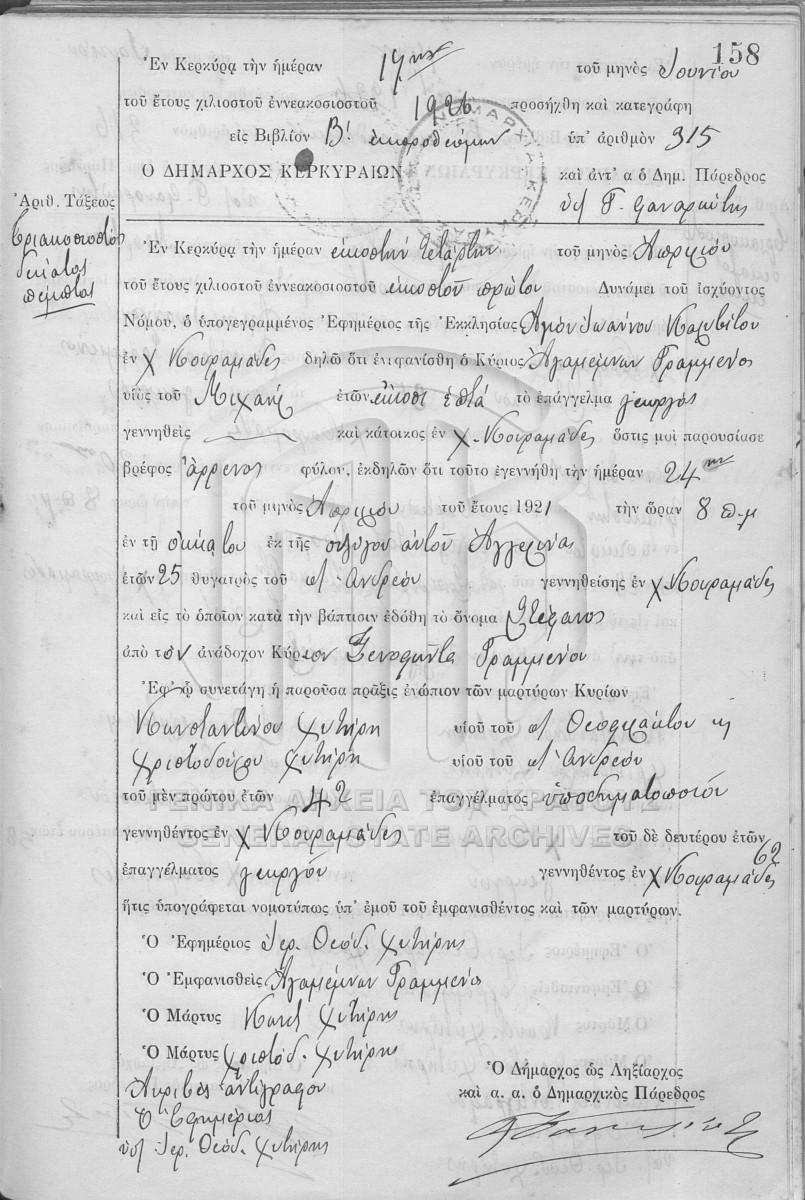 158
Ἐν Κερκύρᾳ τὴν ἡμέραν 17ην τοῦ μηνὸς Ἰουνίου
τοῦ ἔτους χιλιοστοῦ ἐννεακοσιοστοῦ 1926 προσήχθη καὶ κατεγράφη
εἰς Βιβλίον Β! ἐκπροθέσμων ὑπ' ἀριθμὸν 315
Ο ΔΗΜΑΡΧΟΣ ΚΕΡΚΥΡΑΙΩΝ καὶ ἀντ' α ὁ Δημ. Πάρεδρος
Ἀριθ. Τάξεως
Τριακοσιοστὸς
δέκατος
πέμπτος
Ἐν Κερκύρᾳ τὴν ἡμέραν εἰκοστὴν τετάρτην τοῦ μηνὸς Ἀπριλίου
τοῦ ἔτους χιλιοστοῦ ἐννεακοσιοστοῦ εἰκοστοῦ πρώτου Δυνάμει τοῦ ἰσχύοντος
Νόμου, ὁ ὑπογεγραμμένος Ἐφημέριος τῆς Ἐκκλησίας Ἁγίου Ἰωάννου Καλυβίτου
ἐν χ Κουραμάδες δηλῶ ὅτι ἐνεφανίσθη ὁ Κύριος Ἀγαμέμνων Γραμμένος
υἱὸς τοῦ Μιχαὴλ ἐτῶν εἴκοσι ἑπτά τὸ ἐπάγγελμα γεωργὸς
γεννηθεὶς — καὶ κάτοικος ἐν χ. Κουραμάδες ὅστις μοὶ παρουσίασε
βρέφος ἄρρενος φύλου, ἐκδηλῶν ὅτι τοῦτο ἐγεννήθη τὴν ἡμέραν 24ην
τοῦ μηνὸς Ἀπριλίου τοῦ ἔτους 1921 τὴν ὥραν 8 π.μ
ἐν τῇ οἰκίᾳ του ἐκ τῆς συζύγου αὐτοῦ Ἀγγελίνας
ἐτῶν 25 θυγατρὸς τοῦ Ἀνδρέου γεννηθείσης ἐν χ Κουραμάδες
καὶ εἰς τὸ ὁποῖον κατὰ τὴν βάπτισιν ἐδόθη τὸ ὄνομα Στέφανος
ἀπὸ τὸν ἀνάδοχον Κύριον Ξενοφῶντα Γραμμένου
Ἐφ' ᾧ συνετάγη ἡ παροῦσα πρᾶξις ἐνώπιον τῶν μαρτύρων Κυρίων
Κωνσταντίνου Χυτήρη υἱοῦ τοῦ Θεοφυλάκτου κ
Χριστοδούλου Χυτήρη υἱοῦ τοῦ Ἀνδρέου
τοῦ μὲν πρώτου ἐτῶν 42 ἐπαγγέλματος ὑποδηματοποιοῦ
ΓΕΝΙΚΑ ΑΡΧΕΙΑ ΤΟΥ ΚΡΑΤΟΥΣ
γεννηθέντος ἐν χ Κουραμάδες τοῦ δὲ δευτέρου ἐτῶν 62
GENERAL STATE ARCHIVES
ἐπαγγέλματος γεωργοῦ γεννηθέντος ἐν χ Κουραμάδες
ἥτις ὑπογράφεται νομοτύπως ὑπ' ἐμοῦ τοῦ ἐμφανισθέντος καὶ τῶν μαρτύρων.
Ὁ Ἐφημέριος Ἱερ. Θεόδ. Χυτήρης
Ὁ Ἐμφανισθεὶς Ἀγαμέμνων Γραμμένος
Ὁ Μάρτυς Κωνστ Χυτήρης
Ὁ Μάρτυς Χριστόδ. Χυτήρης
Ἀκριβὲς ἀντίγραφον
Ὁ Ἐφημέριος
Ἱερ. Θεόδ. Χυτήρης
Ὁ Δήμαρχος ὡς Ληξίαρχος
καὶ α. α. ὁ Δημαρχικὸς Πάρεδρος